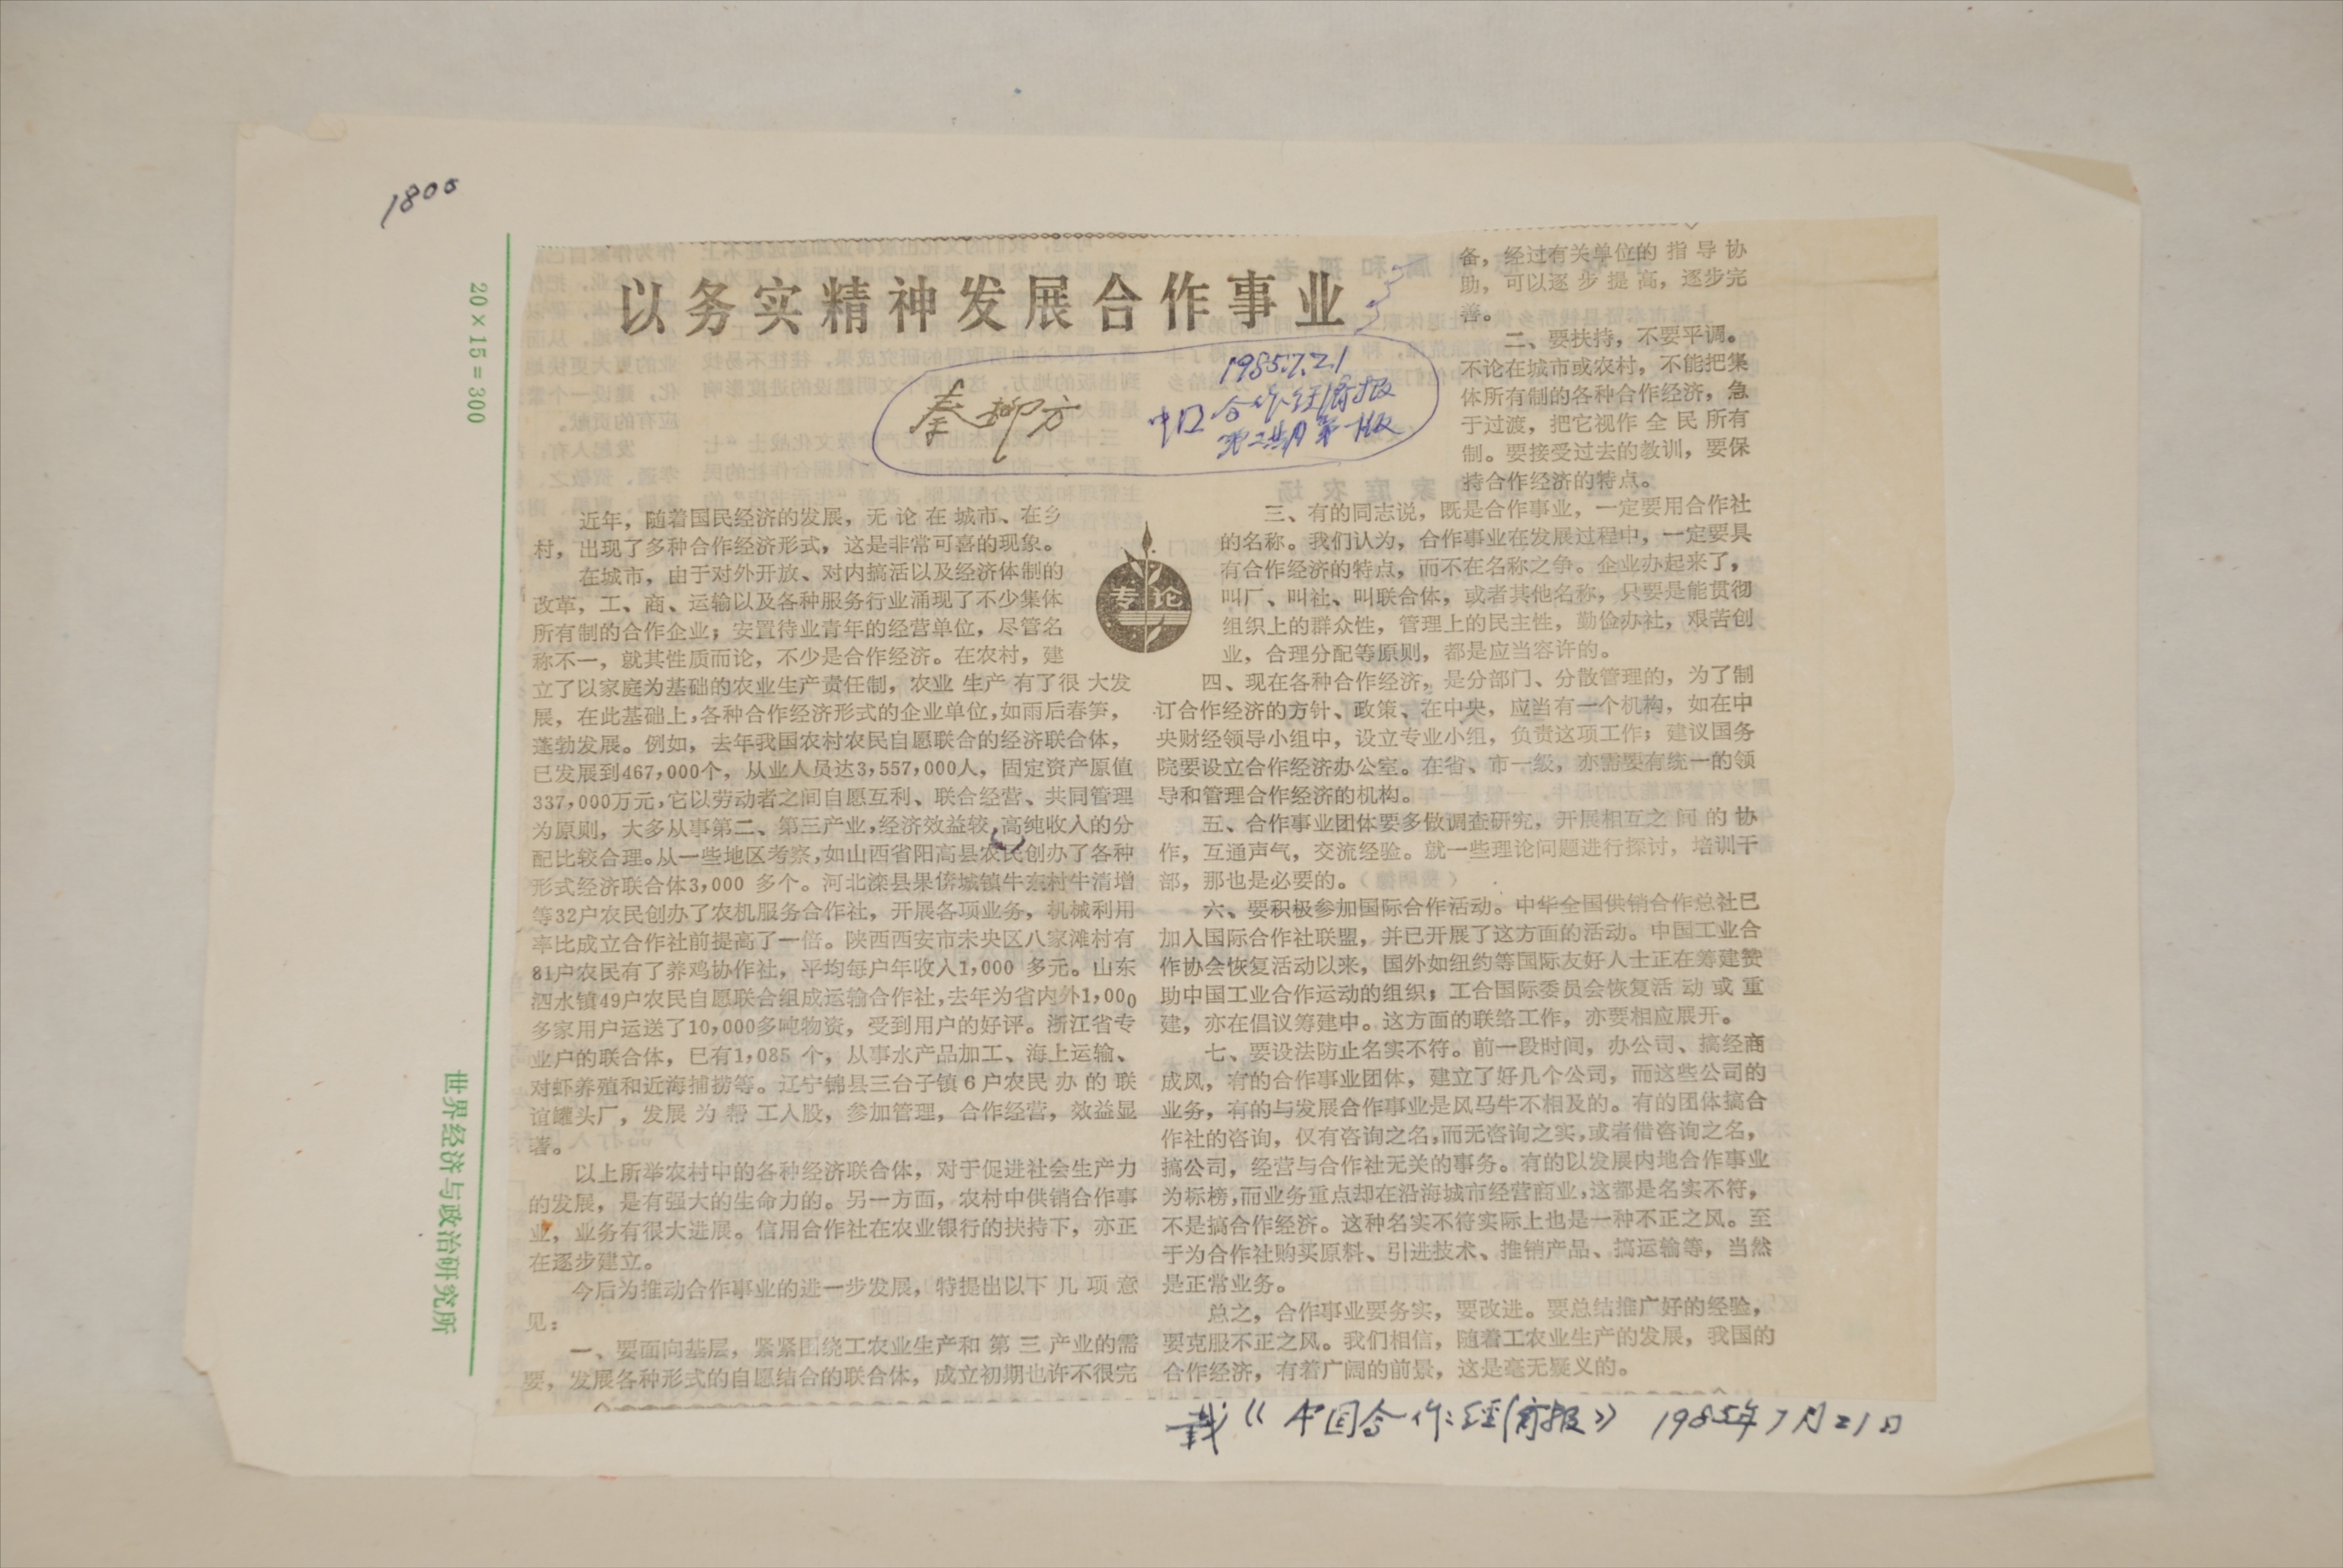 1800
20×15=300
世界经济与政治研究所
以务实精神发展合作事业
秦柳方
1985.7.21
中国合作经济报
第二期第一版
近年，随着国民经济的发展，无论在城市、在乡
村，出现了多种合作经济形式，这是非常可喜的现象。
在城市，由于对外开放、对内搞活以及经济体制的
改革，工、商、运输以及各种服务行业涌现了不少集体
所有制的合作企业；安置待业青年的经营单位，尽管名
称不一，就其性质而论，不少是合作经济。在农村，建
立了以家庭为基础的农业生产责任制，农业生产有了很大发
展，在此基础上，各种合作经济形式的企业单位，如雨后春笋，
蓬勃发展。例如，去年我国农村农民自愿联合的经济联合体，
已发展到467,000个，从业人员达3,557,000人，固定资产原值
337,000万元，它以劳动者之间自愿互利、联合经营、共同管理
为原则，大多从事第二、第三产业，经济效益较，高纯收入的分
配比较合理。从一些地区考察，如山西省阳高县农民创办了各种
形式经济联合体3,000多个。河北滦县果侪城镇牛东村牛清增
等32户农民创办了农机服务合作社，开展各项业务，机械利用
率比成立合作社前提高了一倍。陕西西安市未央区八家滩村有
81户农民有了养鸡协作社，平均每户年收入1,000多元。山东
泗水镇49户农民自愿联合组成运输合作社，去年为省内外1,000
多家用户运送了10,000多吨物资，受到用户的好评。浙江省专
业户的联合体，已有1,085个，从事水产品加工、海上运输、
对虾养殖和近海捕捞等。辽宁锦县三台子镇6户农民办的联
谊罐头厂，发展为帮工入股，参加管理，合作经营，效益显
著。
以上所举农村中的各种经济联合体，对于促进社会生产力
的发展，是有强大的生命力的。另一方面，农村中供销合作事
业，业务有很大进展。信用合作社在农业银行的扶持下，亦正
在逐步建立。
今后为推动合作事业的进一步发展，特提出以下几项意
见：
一、要面向基层，紧紧围绕工农业生产和第三产业的需
要，发展各种形式的自愿结合的联合体，成立初期也许不很完
专论
备，经过有关单位的指导协
助，可以逐步提高，逐步完
善。
二、要扶持，不要平调。
不论在城市或农村，不能把集
体所有制的各种合作经济，急
于过渡，把它视作全民所有
制。要接受过去的教训，要保
持合作经济的特点。
三、有的同志说，既是合作事业，一定要用合作社
的名称。我们认为，合作事业在发展过程中，一定要具
有合作经济的特点，而不在名称之争。企业办起来了，
叫厂、叫社、叫联合体，或者其他名称，只要是能贯彻
组织上的群众性，管理上的民主性，勤俭办社，艰苦创
业，合理分配等原则，都是应当容许的。
四、现在各种合作经济，是分部门、分散管理的，为了制
订合作经济的方针、政策、在中央，应当有一个机构，如在中
央财经领导小组中，设立专业小组，负责这项工作；建议国务
院要设立合作经济办公室。在省、市一级，亦需要有统一的领
导和管理合作经济的机构。
五、合作事业团体要多做调查研究，开展相互之间的协
作，互通声气，交流经验。就一些理论问题进行探讨，培训干
部，那也是必要的。
六、要积极参加国际合作活动。中华全国供销合作总社已
加入国际合作社联盟，并已开展了这方面的活动。中国工业合
作协会恢复活动以来，国外如纽约等国际友好人士正在筹建赞
助中国工业合作运动的组织；工合国际委员会恢复活动或重
建，亦在倡议筹建中。这方面的联络工作，亦要相应展开。
七、要设法防止名实不符。前一段时间，办公司、搞经商
成风，有的合作事业团体，建立了好几个公司，而这些公司的
业务，有的与发展合作事业是风马牛不相及的。有的团体搞合
作社的咨询，仅有咨询之名，而无咨询之实，或者借咨询之名，
搞公司，经营与合作社无关的事务。有的以发展内地合作事业
为标榜，而业务重点却在沿海城市经营商业，这都是名实不符，
不是搞合作经济。这种名实不符实际上也是一种不正之风。至
于为合作社购买原料、引进技术、推销产品、搞运输等，当然
是正常业务。
总之，合作事业要务实，要改进。要总结推广好的经验，
要克服不正之风。我们相信，随着工农业生产的发展，我国的
合作经济，有着广阔的前景，这是毫无疑义的。
载《中国合作经济报》 1985年7月21日